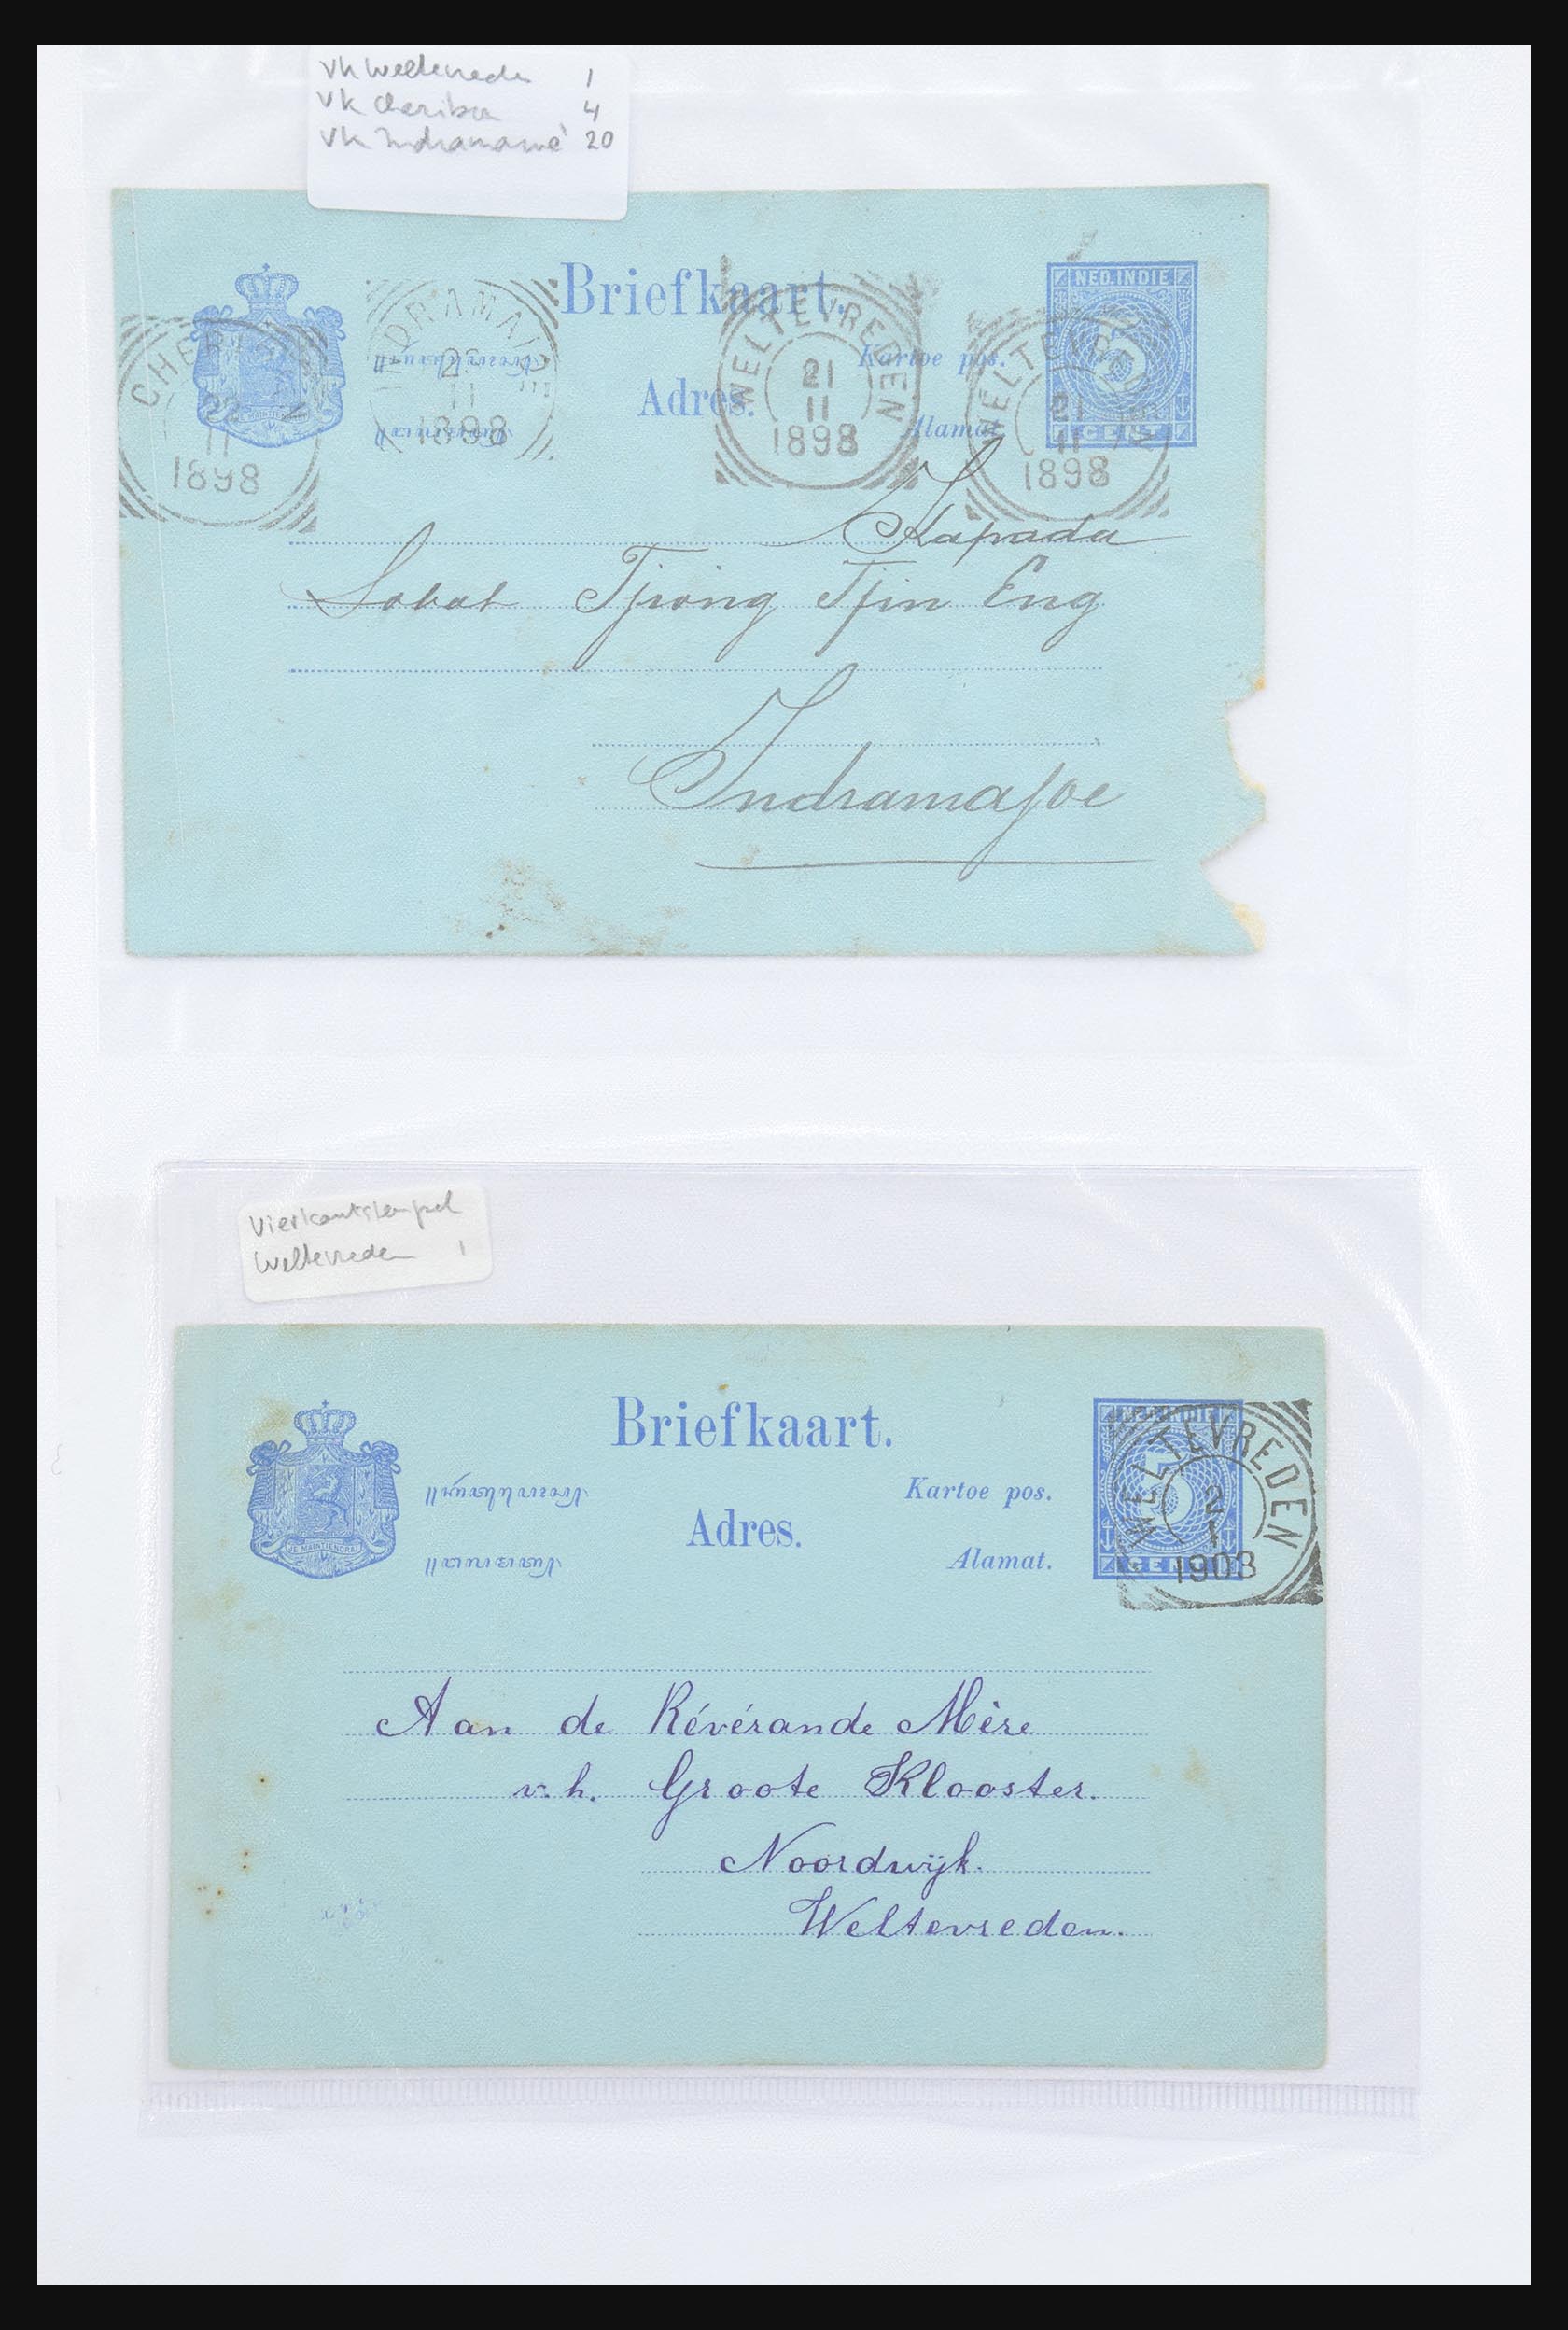 Vk Weltevreden 1
Vk Cheribon 4
Vk Indramaioe 20
Briefkaart.
NED. INDIE
5
CENT
Kartoe pos.
Adres.
Alamat.
CHERIBON
22
11
1898
INDRAMAIOE
11
1898
WELTEVREDEN
21
11
1898
WELTEVREDEN
21
11
1898
Kapada
Sobat Tjiong Tjin Eng
Indramajoe
Vierkantstempel
Weltevreden 1
Briefkaart.
NED. INDIE
5
CENT
Kartoe pos.
Adres.
Alamat.
JE MAINTIENDRAI
WELTEVREDEN
2
1
1903
Aan de Révérande Mère
v. h. Groote Klooster.
Noordwijk.
Weltevreden.